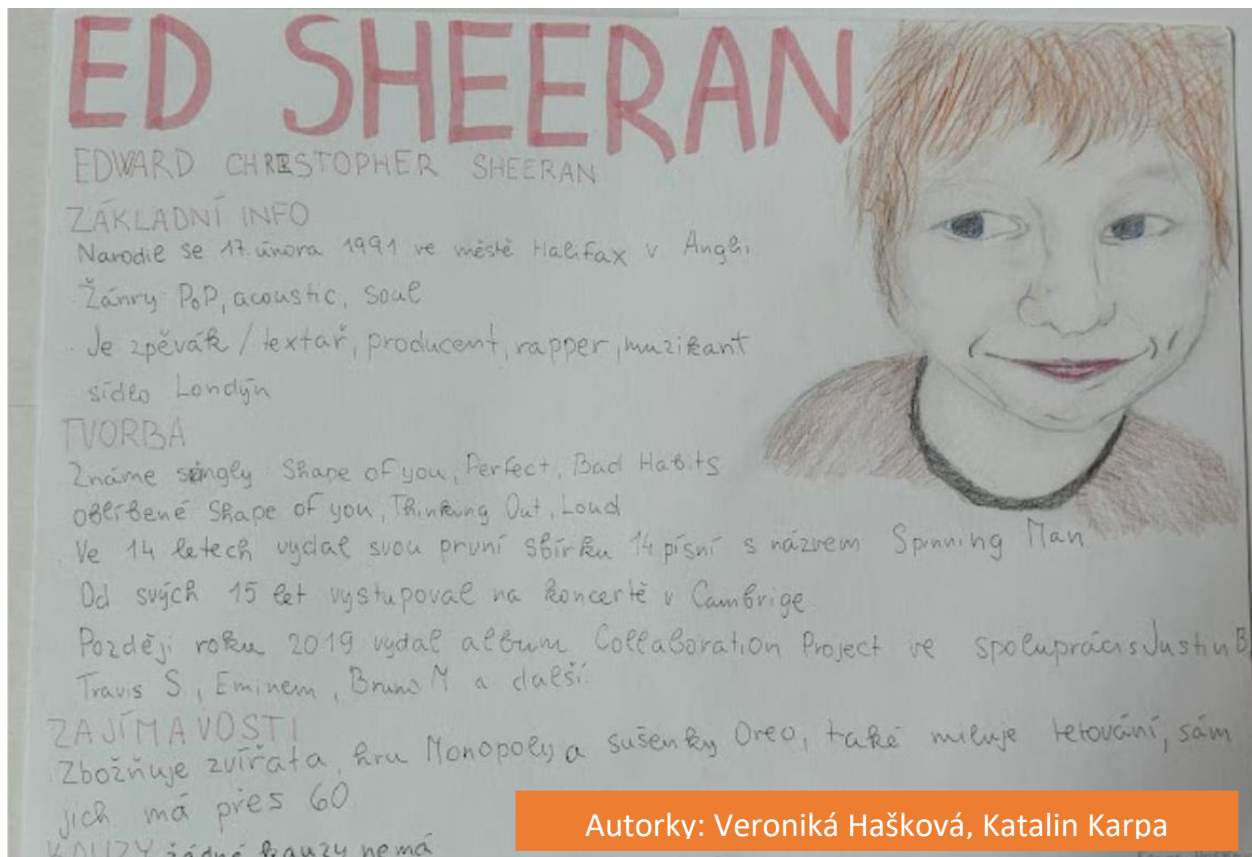 ED SHEERAN
EDWARD CHRISTOPHER SHEERAN
ZÁKLADNÍ INFO
Narodil se 17. února 1991 ve městě Halifax v Angli.
Žánry PoP, acoustic, soul
Je zpěvák / textař, producent, rapper, muzikant
sídlo Londýn
TVORBA
Známe singly Shape of you, Perfect, Bad Habits
oblíbené Shape of you, Thinking Out, Loud
Ve 14 letech vydal svou první sbírku 14 písní s názvem Spinning Man
Od svých 15 let vystupoval na koncertě v Cambrige
Později roku 2019 vydal album Collaboration Project ve spoluprácis Justin B,
Travis S., Eminem, Bruno M a další.
ZAJÍMAVOSTI
Zbožňuje zvířata, hru Monopoly a sušenky Oreo, také miluje tetování, sám
jich má přes 60
KAUZY žádné kauzy nemá
Autorky: Veroniká Hašková, Katalin Karpa